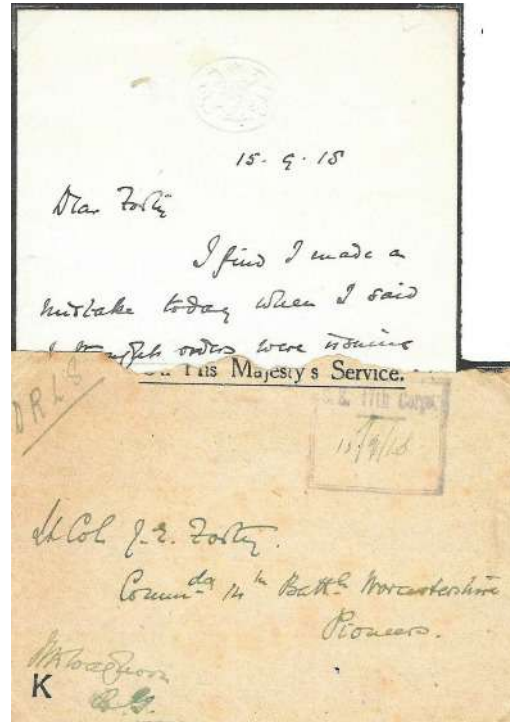 15. 9. 18
Dear
I find I made a
mistake today when I said
I thought orders were issuing
On His Majesty's Service.
DRLS
17th Corps
15/9/18
Lt Col J. E.
Commdg 14th Battln Worcestershire
Pioneers.
K